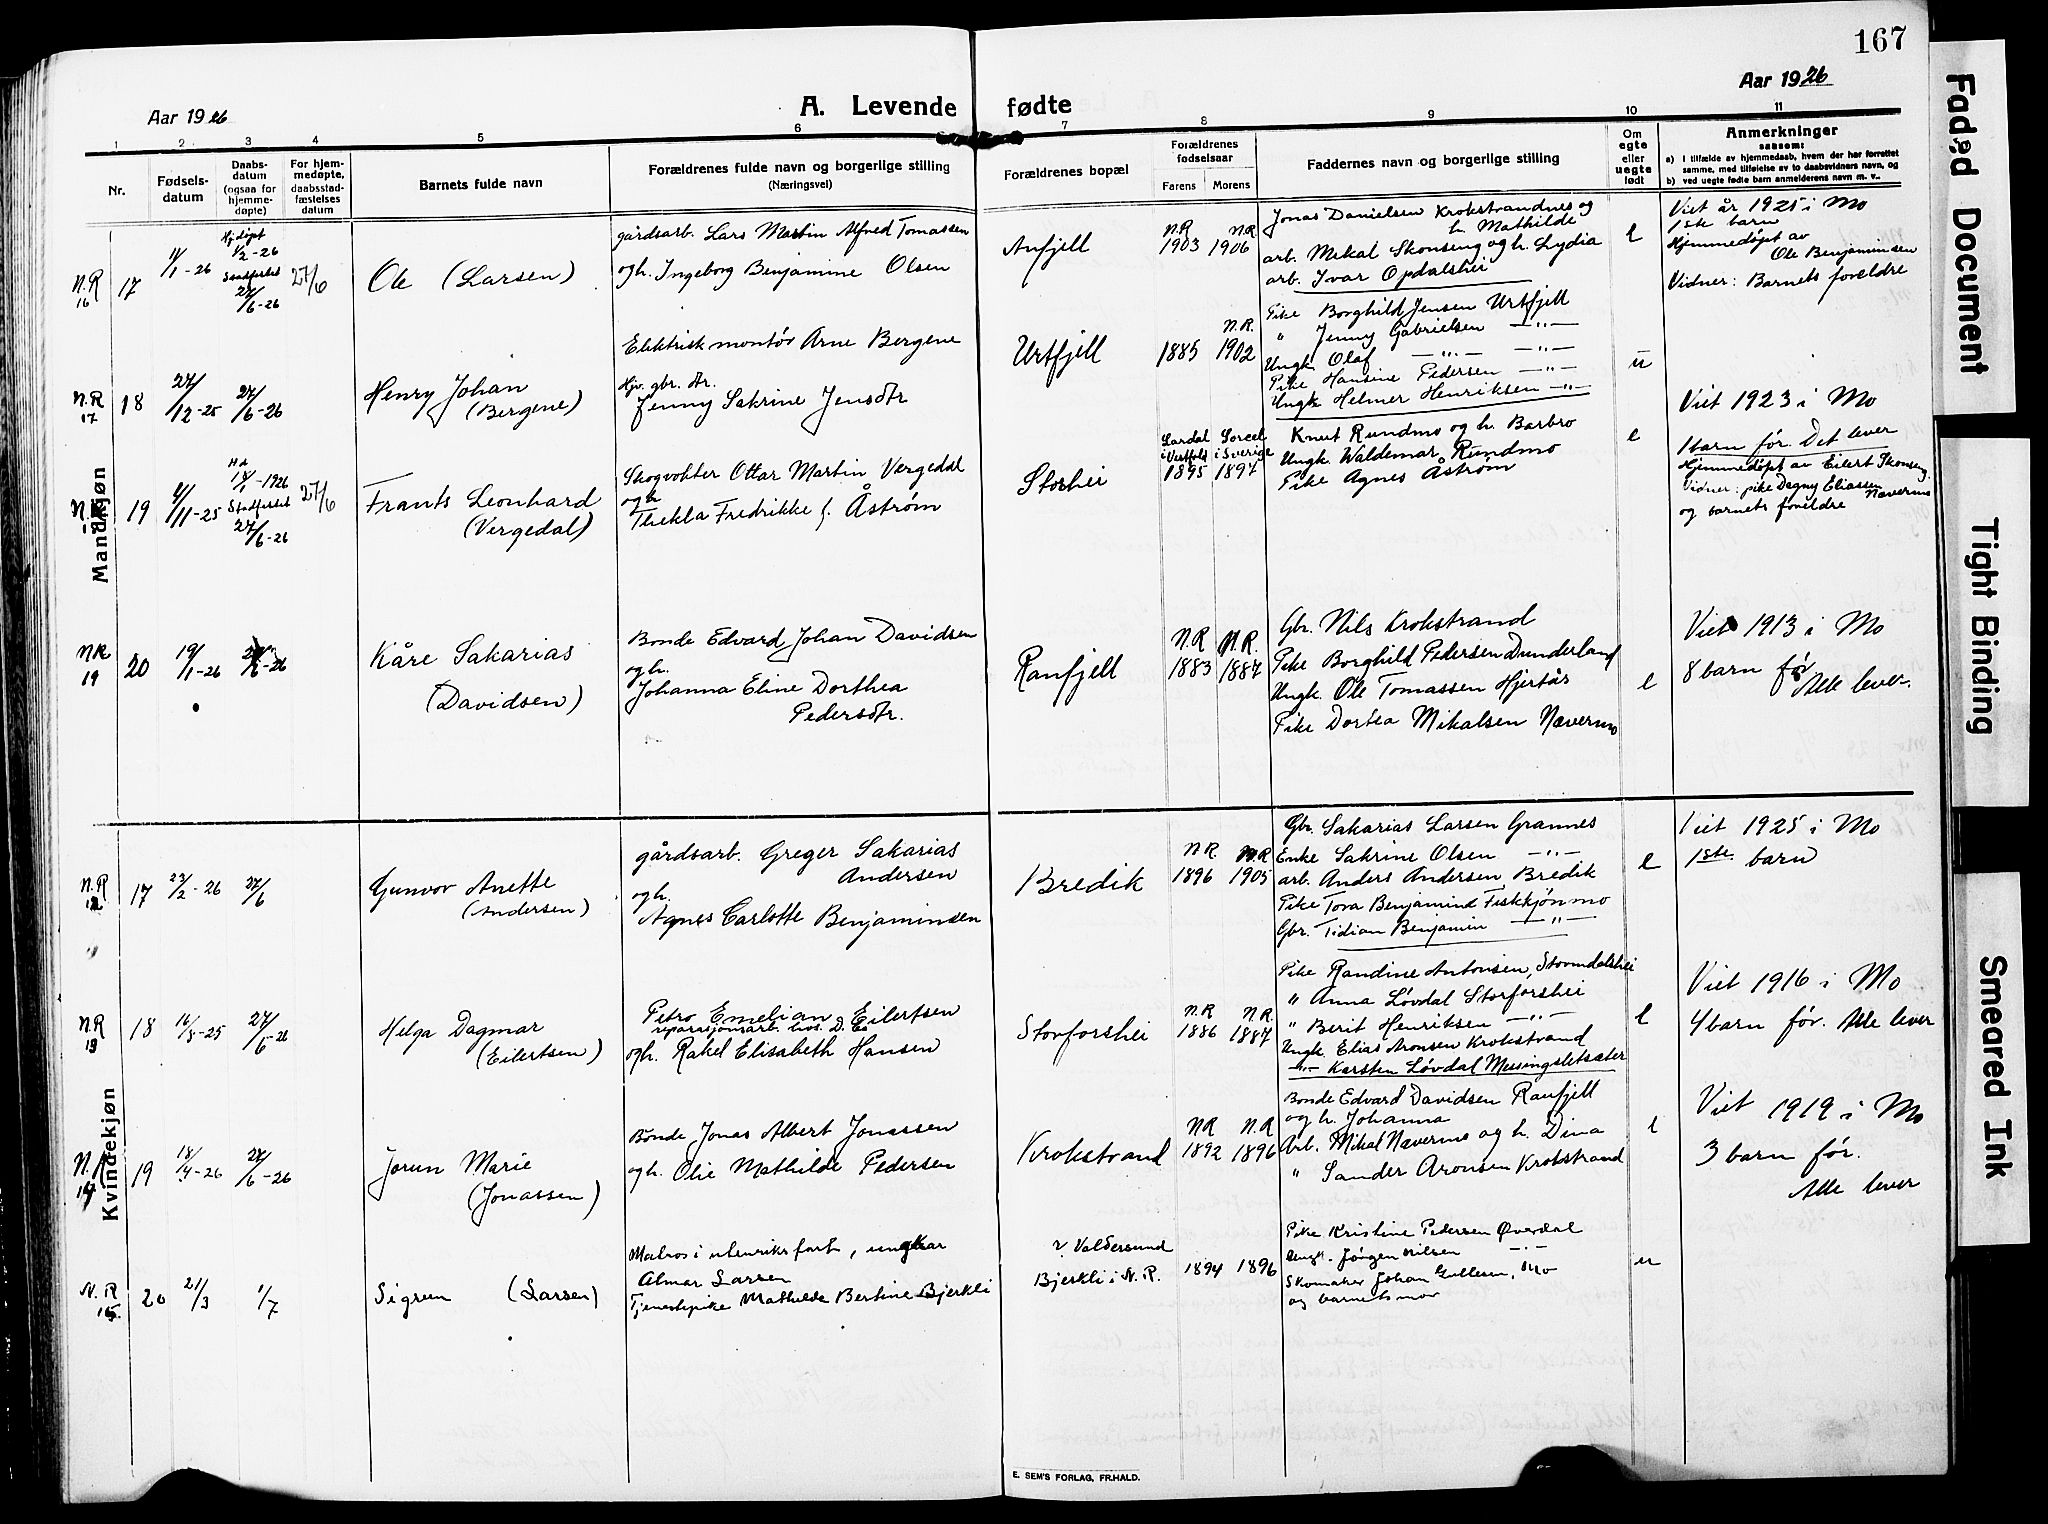 167
Aar 1926
A. Levende fødte
Aar 1926
1 2 3 4 5 6 7 8 9 10 11
Nr.
Fødsels-
datum
Daabs-
datum
(ogsaa for
hjemme-
døpte)
For hjem-
medøpte,
daabsstad-
fæstelses
datum
Barnets fulde navn
Forældrenes fulde navn og borgerlige stilling
(Næringsvei)
Forældrenes bopæl
Forældrenes
fødselsaar
Farens Morens
Faddernes navn og borgerlige stilling
Om
egte
eller
uegte
født
Anmerkninger
saasom:
a) I tilfælde av hjemmedaab, hvem der har forrettet
samme, med tilføielse av to daabsvidners navn, og
b) ved uegte fødte barn anmelderens navn m. v..
Mandkjøn
N.R
16
17
11/1-26
Hj.døpt
1/2-26
Stadfestet
27/6-26
27/6
Ole (Larsen)
gårdsarb. Lars Martin Alfred Tomassen
og h. Ingeborg Benjamine Olsen
Anfjell
N.R N.R
1903 1906
Jonas Danielsen Krokstrandnes og
h. Mathilde
arb. Mikal Skonseng og h. Lydia
arb. Ivar Opdalshei
e
Viet år 1925 i Mo
1ste barn
Hjemmedøpt av
Ole Benjaminsen
Vidner: Barnets foreldre
N.R
17
18
27/12-25
27/6-26
Henry Johan
(Bergene)
Elektrisk montør Arne Bergene
Hjv. gbr. dr.
Jenny Sakrine Jensdtr
Urtfjell
N.R.
1885 1902
Pike Borghild Jensen Urtfjell
" Jenny Gabrielsen —"—
Ungk. Olaf —"— —"—
Pike Hansine Pedersen —"—
Ungk Helmer Henriksen —"—
u
Viet 1923 i Mo
19
Hd.
1926
Stadfestet
27/6-26
27/6
Frants Leonhard
(Vergedal)
Skogvokter Ottar Martin Vergedal
og h
Thekla Fredrikke f. Åstrøm
Storhei
Lardal Sorsel
i Vestfold i Sverige
1895 1897
Knut Rundmo og h. Barbro
Ungk. Waldemar Rundmo
Pike Agnes Åstrøm
e
1 barn før. Det lever
Hjemmedøpt av Eilert Skonseng
Vidner: pike Dagny Eliassen
Nævermo
og barnets foreldre
N.R
19
20
19/1-26
27/6-26
Kåre Sakarias
(Davidsen)
Bonde Edvard Johan Davidsen
og h.
Johanna Eline Dorthea
Pedersdtr.
Ranfjell
N.R N.R.
1883 1887
Gbr. Nils Krokstrand
Pike Borghild Pedersen Dunderland
Ungk. Ole Tomassen Hjertås
Pike Dortea Mikalsen Nævermo
e
Viet 1913 i Mo
8 barn før
Alle lever.
Kvindekjøn
N.R
12
17
23/2-26
27/6
Gunvor Anette
(Andersen)
gårdsarb. Greger Sakarias
Andersen
og h.
Agnes Carlotte Benjaminsen
Bredik
N.R. N.R
1896 1905
Gbr. Sakarias Larsen Grannes
Enke Sakrine Olsen —"—
arb. Anders Andersen Bredik
Pike Tora Benjamins Fiskkjønmo
Gbr. Tidian Benjamin —"—
e
Viet 1925 i Mo
1ste barn
N.R
13
18
16/5-25
27/6-26
Helga Dagmar
(Eilertsen)
Petro Emelian Eilertsen
reparasjonsarb. hos D. Co
og h. Rakel Elisabeth Hansen
Storforshei
N.R N.R.
1886 1887
Pike Randine Antonsen, Stormdalshei
" Anna Løvdal Storforshei
" Berit Henriksen —"—
Ungk. Elias Aronsen Krokstrand
—"— Karsten Løvdal Messingsletsæter
e
Viet 1916 i Mo
4 barn før. Alle lever
N.R
14
19
18/4-26
27/6-26
Jorun Marie
(Jonassen)
Bonde Jonas Albert Jonassen
og h. Olie Mathilde Pedersen
Krokstrand
N.R N.R
1892 1896
Bonde Edvard Davidsen Ranfjell
og h. Johanna
Arb. Mikal Nævermo og h. Dina
" Sander Aronsen Krokstrand
e
Viet 1919 i Mo
3 barn før.
Alle lever
N.R
15
20
21/3
1/7
Sigrun (Larsen)
Matros i utenriksfart, ungkar
Almar Larsen
Tjenestepike Mathilde Bertine Bjerkli
Valdersund
Bjerkli i N.R.
1894 1896
Pike Kristine Pedersen Øverdal
Ungk. Jørgen Nilsen —"—
Skomaker Johan Gullesen, Mo
og barnets mor
u
E. SEM'S FORLAG, FR.HALD.
Faded Document
Tight Binding
Smeared Ink